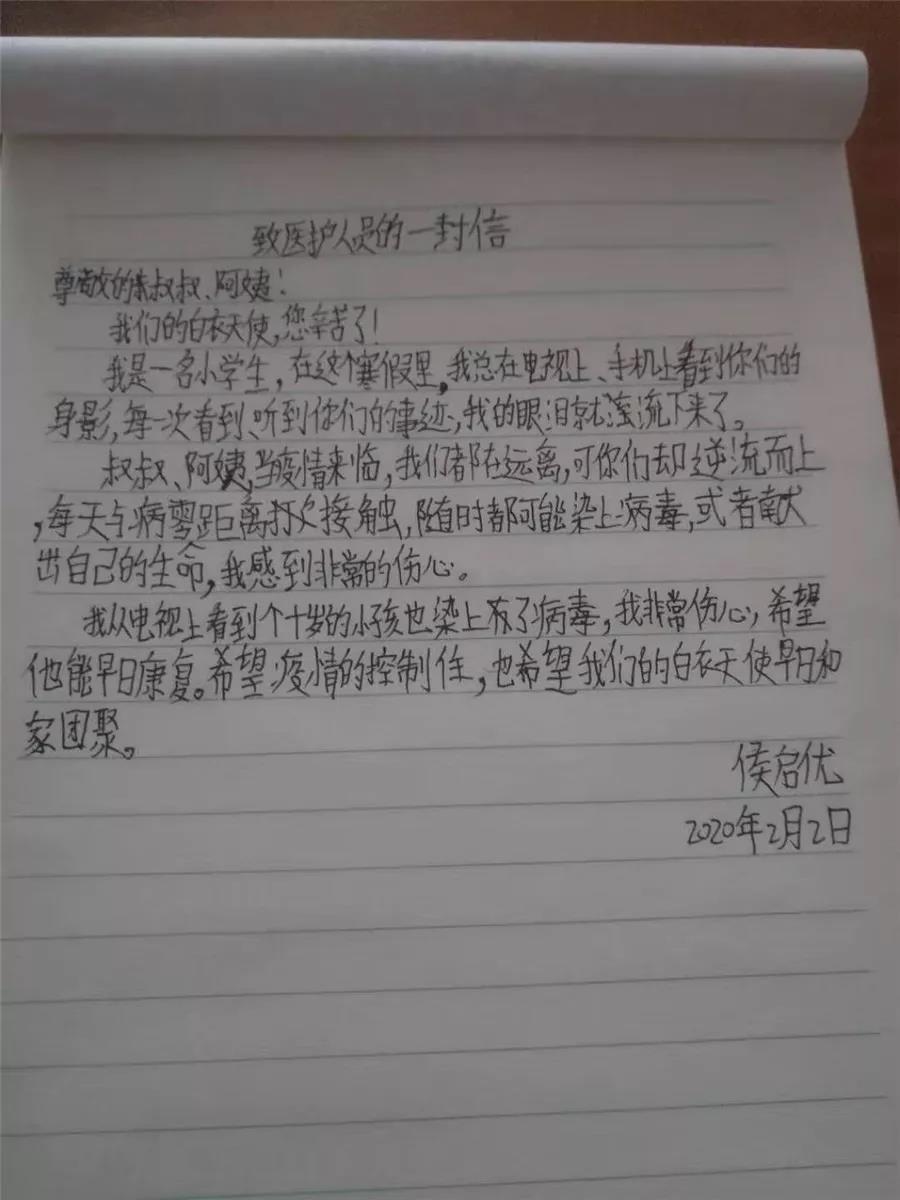 致医护人员的一封信
尊敬的叔叔、阿姨！
我们的白衣天使，您辛苦了！
我是一名小学生，在这个寒假里，我总在电视上、手机上看到你们的
身影，每一次看到、听到你们的事迹，我的眼泪就流下来了。
叔叔、阿姨，当疫情来临，我们都在远离，可你们却逆流而上
，每天与病零距离接触，随时都可能染上病毒，或者献
出自己的生命，我感到非常的伤心。
我从电视上看到个十岁的小孩也染上了病毒，我非常伤心，希望
他能早日康复。希望疫情的控制住，也希望我们的白衣天使早日和
家团聚。
侯启优
2020年2月2日